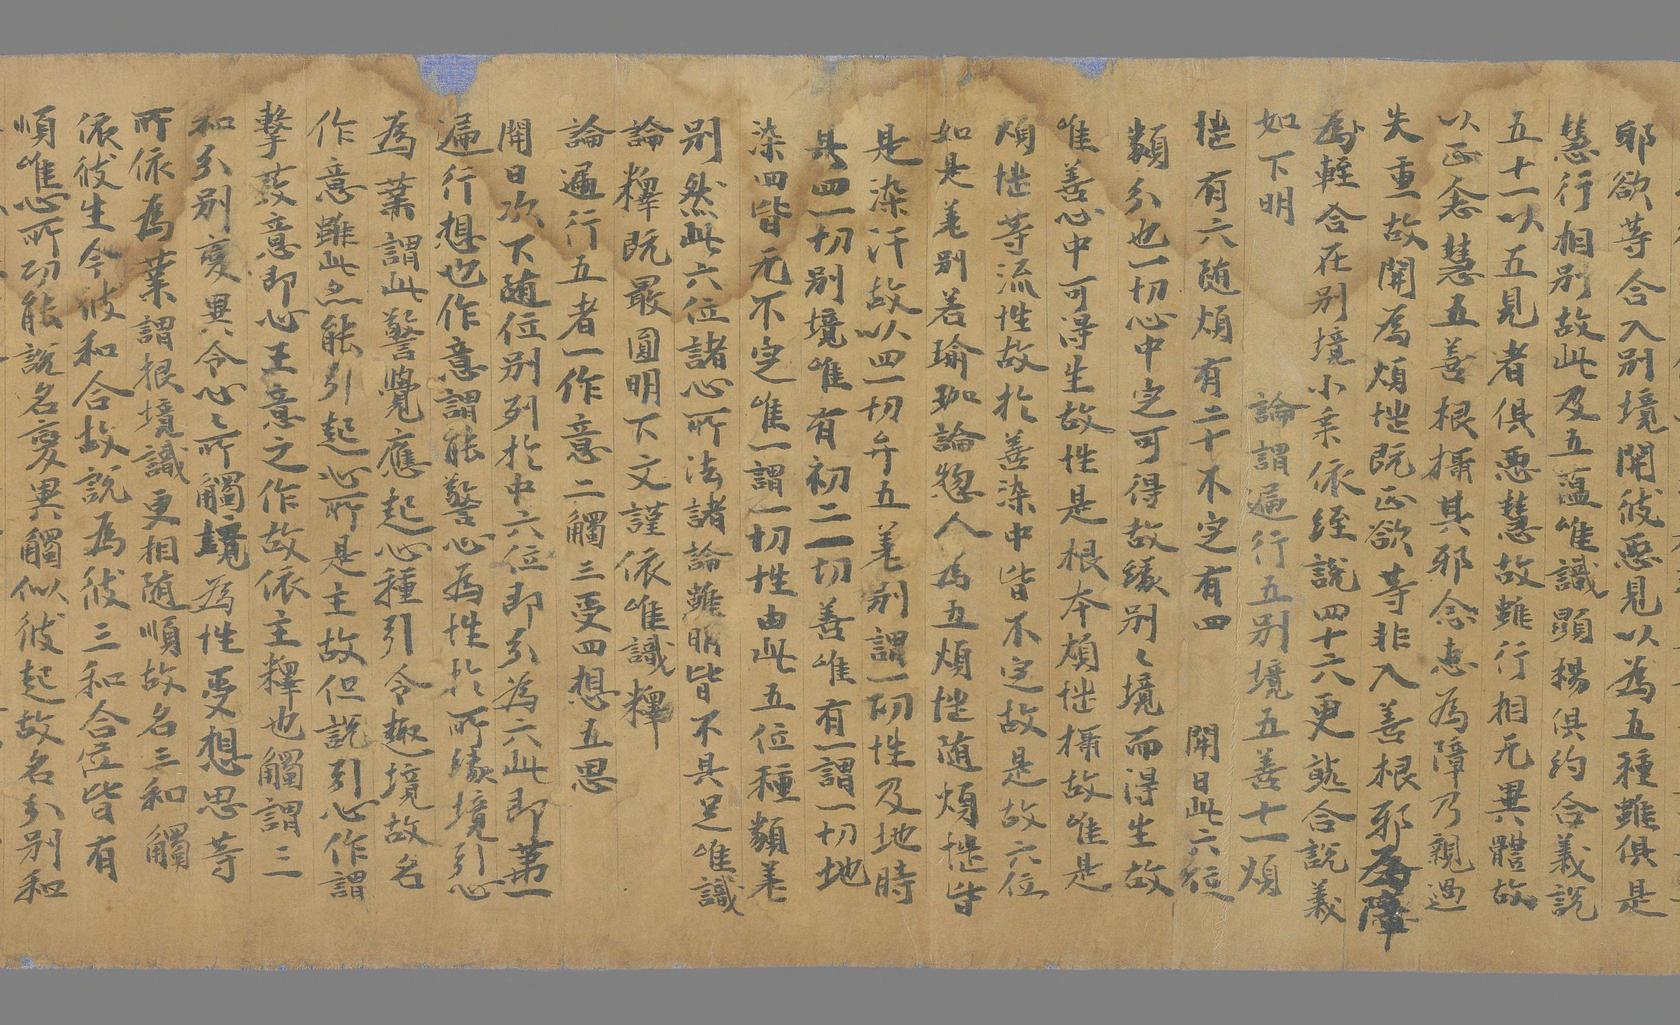 耶欲等合入別境開彼惡見以為五種雖俱是
慧行相別故此及五蘊唯識顯揚俱約合義說
五十一以五見者俱惡慧故雖行相无異體故
以正念慧五善根攝其邪念恵為障乃親過
失重故開為煩惱既正欲等非入善根邪為障
為輕合在別境小乗依經說四十六更態合說義
如下明　論謂遍行五別境五善十一煩
惱有六随煩有二十不定有四　開日此六位
類分也一切心中定可得故緣別〻境而得生故
唯善心中可得生故性是根本煩惱攝故唯是
煩惱等流性故於善染中皆不定故是故六位
如是差別若瑜珈論惣人為五煩惱随煩惱皆
是染汙故以四一切弁五差別謂一切性及地時
具四一切別境唯有初二一切善唯有一謂一切地
染四皆无不定唯一謂一切性由此五位種類差
別然此六位諸心所法諸論雖明皆不具足唯識
論釋既最圓明下文謹依唯識釋
論遍行五者一作意二觸三受四想五思
開日次下随位別列於中六位即分為六此即苐一
遍行想也作意謂能警心為性於所緣境引心
為業謂此警覺應起心種引令趣境故名
作意雖此亦能引起心所是主故但說引心作謂
擊發意即心王意之作故依主釋也觸謂三
和分別變異令心〻所觸境為性受想思等
所依為業謂根境識更相随順故名三和觸
依彼生令彼和合故說為彼三和合位皆有
順唯心所功能說名變異觸似彼起故名分別和